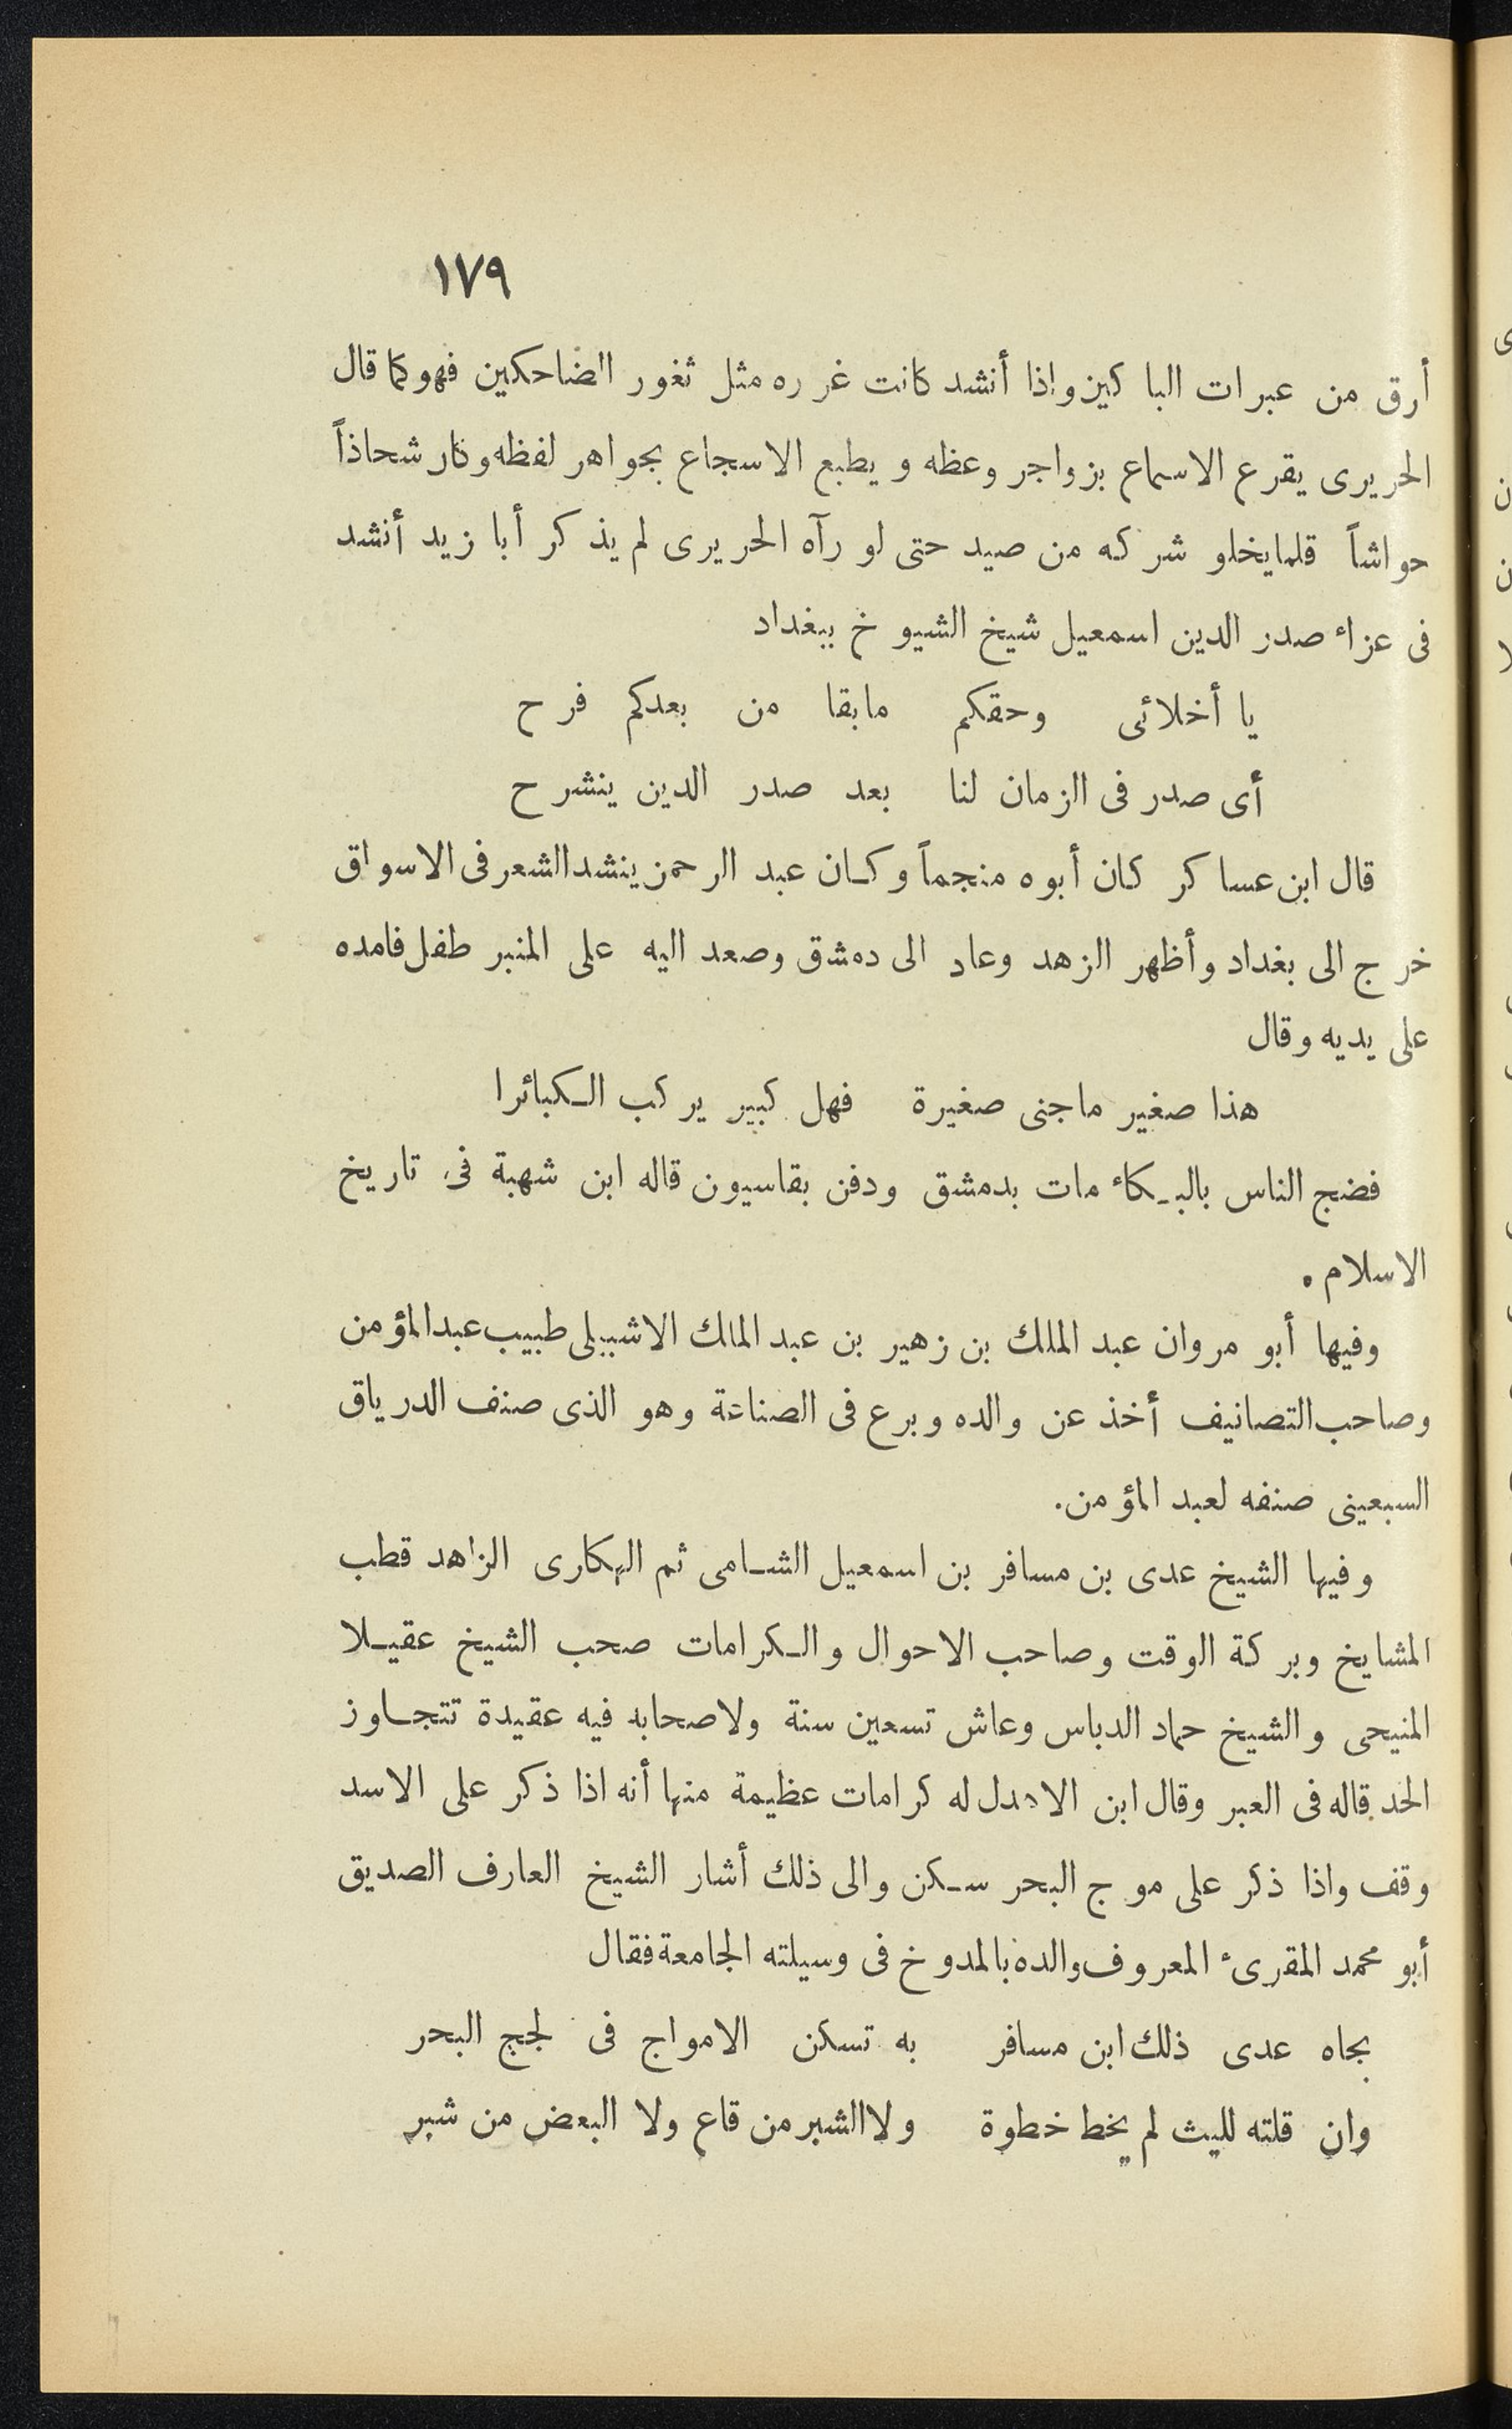 ١٧٩
أرق من عبرات الباكين وإذا أنشد كانت غرره مثل ثغور الضاحكين فهو كما قال
الحريرى يقرع الاسماع بزواجر وعظه ويطبع الاسجاع بجواهر لفظه وكان شحاذاً
حواشاً قلما يخلو شركه من صيد حتى لو رآه الحريرى لم يذكر أبا زيد أنشد
فى عزاء صدر الدين اسمعيل شيخ الشيوخ ببغداد
يا أخلائى وحقكم مابقا من بعدكم فرح
أى صدر فى الزمان لنا بعد صدر الدين ينشرح
قال ابن عساكر كان أبوه منجماً وكان عبد الرحمن ينشد الشعر فى الاسواق
خرج الى بغداد وأظهر الزهد وعاد الى دمشق وصعد اليه على المنبر طفل فامده
على يديه وقال
هذا صغير ماجنى صغيرة فهل كبير يركب الكبائرا
فضج الناس بالبكاء مات بدمشق ودفن بقاسيون قاله ابن شهبة فى تاريخ
الاسلام .
وفيها أبو مروان عبد الملك بن زهير بن عبد الملك الاشبيلى طبيب عبد المؤمن
وصاحب التصانيف أخذ عن والده وبرع فى الصناعة وهو الذى صنف الدرياق
السبعينى صنفه لعبد المؤمن.
وفيها الشيخ عدى بن مسافر بن اسمعيل الشامى ثم الهكارى الزاهد قطب
المشايخ وبركة الوقت وصاحب الاحوال والكرامات صحب الشيخ عقيلا
المنيحى والشيخ حماد الدباس وعاش تسعين سنة ولاصحابه فيه عقيدة تتجاوز
الحد قاله فى العبر وقال ابن الاهدل له كرامات عظيمة منها أنه اذا ذكر على الاسد
وقف واذا ذكر على موج البحر سكن والى ذلك أشار الشيخ العارف الصديق
أبو محمد المقرىء المعروف والده بالمدوخ فى وسيلته الجامعة فقال
بجاه عدى ذلك ابن مسافر به تسكن الامواج فى لجج البحر
وان قلته لليث لم يخط خطوة ولا الشبر من قاع ولا البعض من شبر